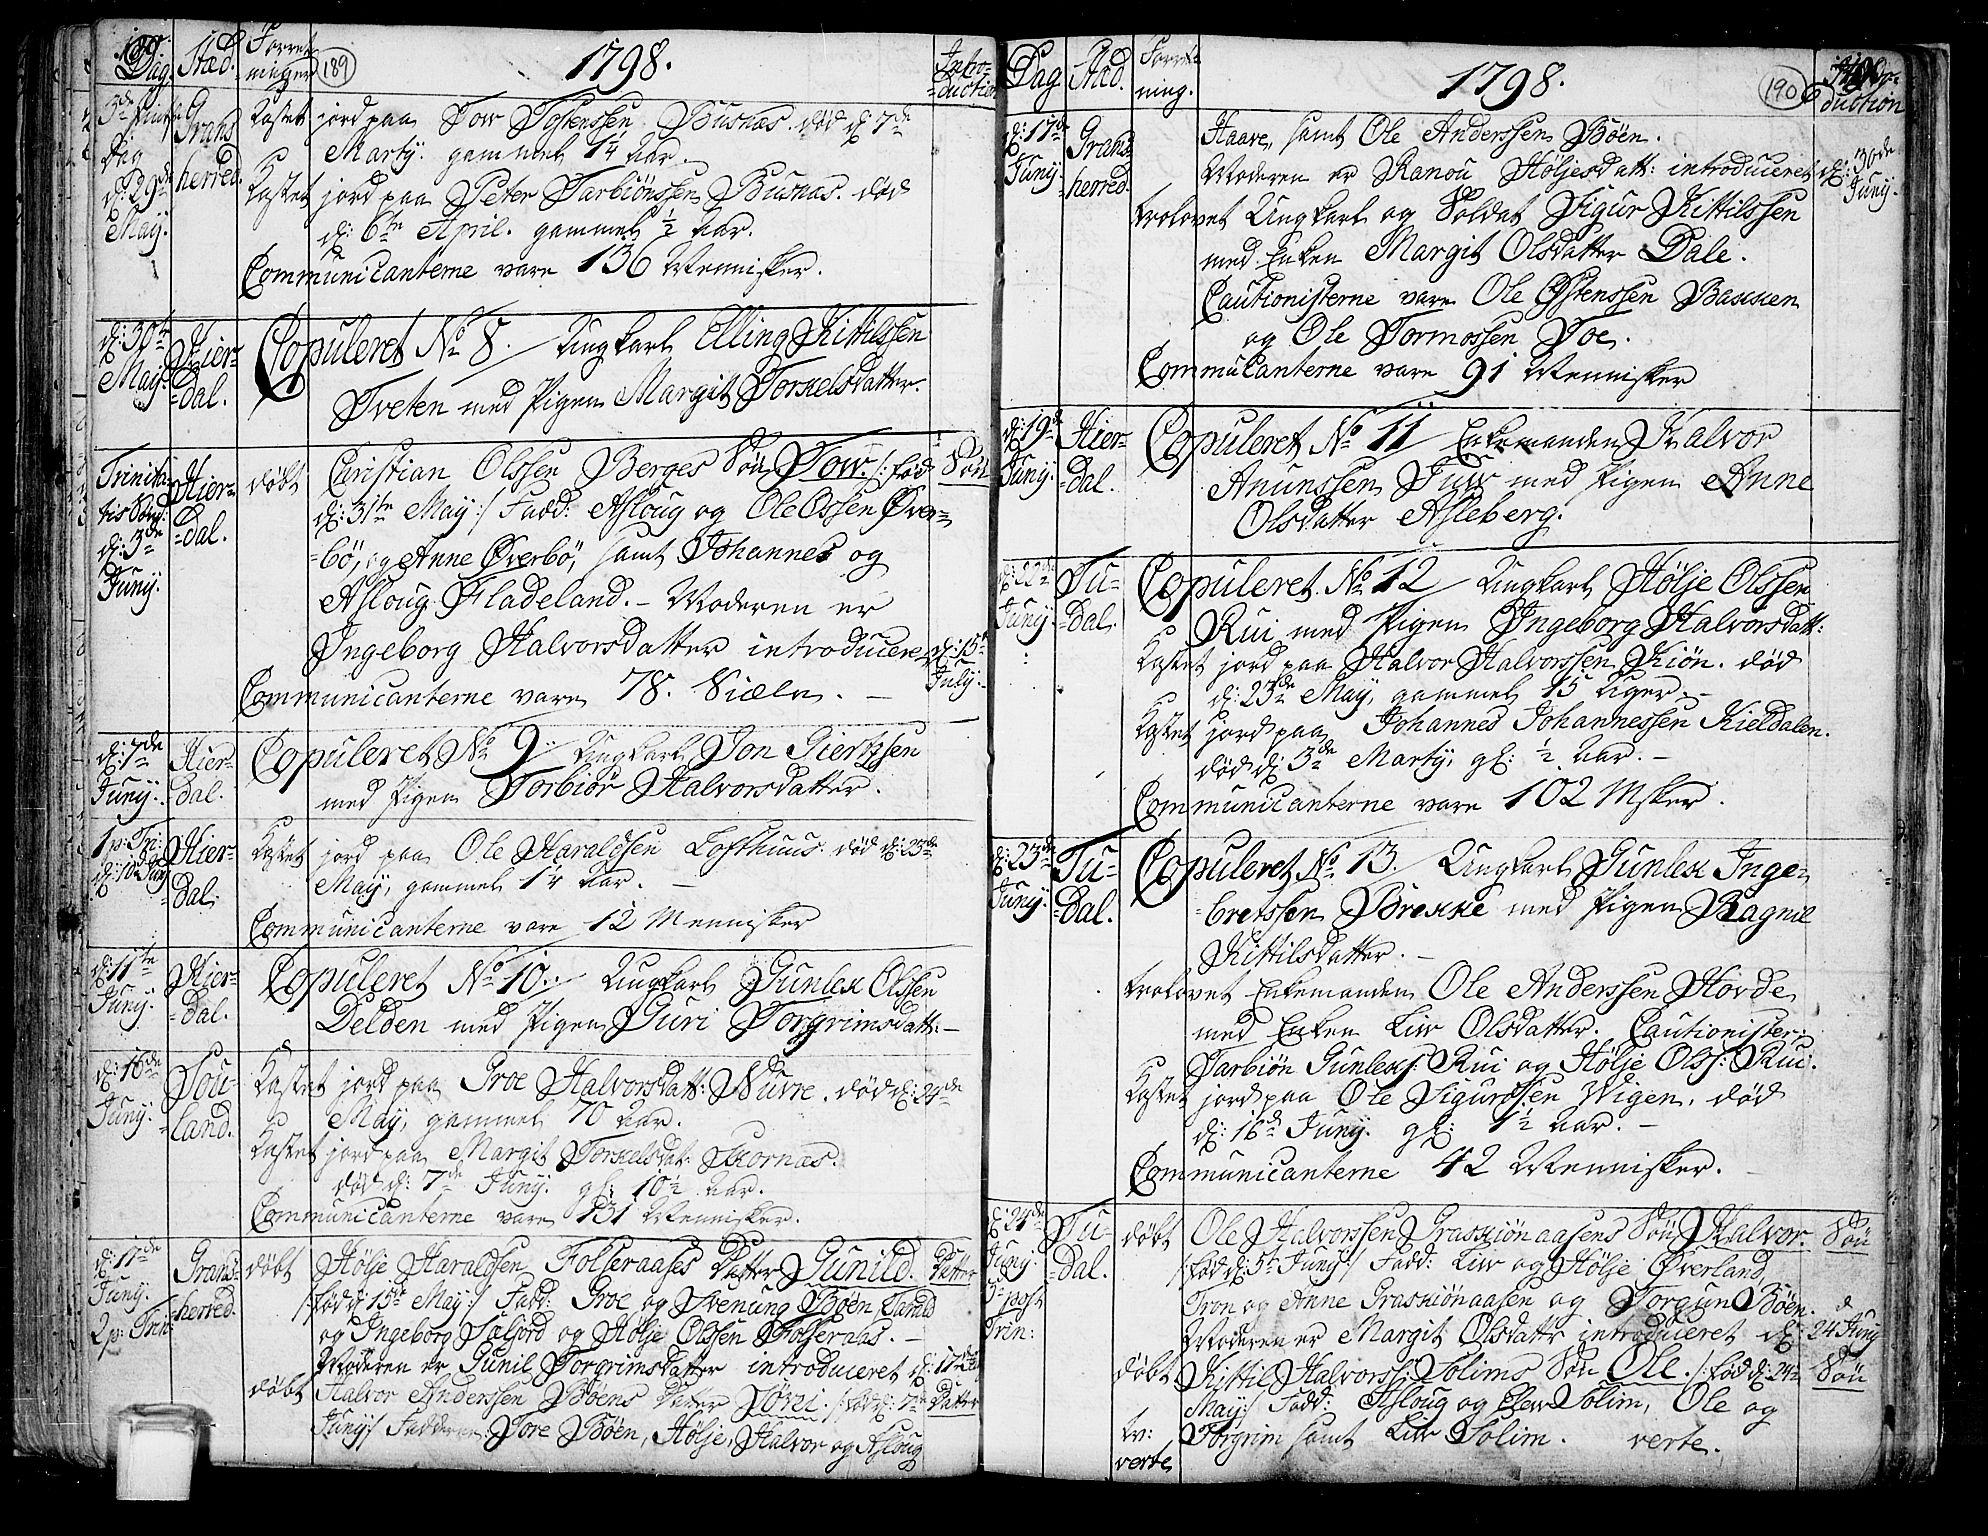 Dag. Stæd. Forret-
ninger 189 1798. Intro-
=duction
3de Pintse
Dag
d: 29de
May.
Grans
herred.
Kastet jord paa Tow Tostenssen Busnæs død d: 7de
Martÿ. gammel 14 Aar.
Kastet jord paa Peter Tarbiönssen Busnæs. død
d: 6te April. gammel ½ Aar.
Communicanterne vare 136 Mennisker.
d: 30te
May.
Hier-
=dal.
Copuleret No 8. Ungkarl Elling Kittilssen
Tveten med Pigen Margit Torkelsdatter.
Trinita-
tis Sönd:
d: 3de
Junÿ.
Hier-
=dal.
döbt Christian Olssen Berges Sön Tow. /: fød Sön
d: 31te May :/ Fadd: Asloug og Ole Olssen Øver-
=bö, og Anne Øverbö, samt Johannes og
Asloug Fladeland. – Moderen er
Ingeborg Halvorsdatter introduceret d: 15de
Julÿ.
Communicanterne vare 78. Siæle. –
d: 7de
Junÿ.
Hier-
dal.
Copuleret No 9 Ungkarl Jon Giertssen
med Pigen Torbiör Halvorsdatter.
1 p: Tri:
d: 10de Junÿ
Hier-
dal.
Kastet jord paa Ole Haraldsen Lofthuus. død d: 23de
May, gammel 14 Aar. –
Communicanterne vare 12 Mennisker
d: 11te
Junÿ.
Hier-
=dal.
Copuleret No 10. Ungkarl Gunlex Olssen
Delden med Pigen Guri Torgrimsdatt: –
d: 16de
Junÿ.
Sou-
=land.
Kastet jord paa Groe Halvorsdatt: Nurre. død d: 24de
May, gammel 70 Aar.
Kastet jord paa Margit Torkelsdat: Skornæs.
død d: 7de Junÿ. gl: 10½ Aar.
Communicanterne vare 131 Mennisker.
d: 17de
Junÿ.
2 p: Trin:
Grans-
herred.
döbt Hölje Haraldsen Folseraases Datter Gunild. Datter
/: fød d: 15de May :/ Fadd: Groe og Svenung Böen, Tarald
og Ingeborg Saljord og Hölje Olssen Folseraas. –
Moderen er Gunil Torgrimsdatter introduceret d: 17de
döbt Halvor Anderssen Böens Datter Sövei. /: fød d: 7de Datter
Junÿ :/ Fadderne: Tore Böen, Hölje, Halvor og Asloug
Dag Stæd. Forret-
ning. 1798. 190 Intro-
duction
d: 17de
Junÿ.
Grans-
herred.
Haave, samt Ole Anderssen Böen.
Moderen er Ranou Höljesdatt: introduceret d: 30de
Junÿ.
trolovet Ungkarl og Soldat Sigur Kittilssen
med Enken Margit Olsdatter Dale.
Cautionisterne vare Ole Østenssen Bakken
og Ole Tormossen Toe.
Commucanterne vare 91 Mennisker
d: 19de
Junÿ.
Hier-
dal.
Copuleret No 11 Enkemanden Halvor
Anunssen Juw med Pigen Anne
Olsdatter Asleberg.
d: 22de
Junÿ.
Tu-
=dal.
Copuleret No 12 Ungkarl Hölje Olssen
Rui med Pigen Ingeborg Halvorsdatt:
Kastet jord paa Halvor Halvorssen Kiön. død
d: 23de May, gammel 15 Uger. –
Kastet jord paa Johannes Johannessen Kieldalen.
død d: 3de Martÿ, gl: ½ Aar. –
Communicanterne vare 102 Msker.
d: 23de
Junÿ.
Tu-
=dal.
Copuleret No 13. Ungkarl Gunlex Inge-
=bretssen Brekke med Pigen Ragnil
Kittilsdatter. –
trolovet Enkemanden Ole Anderssen Hörde
med Enken Liw Olsdatter. Cautionister:
Tarbiön Gunlexs: Rui og Hölje Olss: Rui.
Kastet jord paa Ole Sigurdsen Wigen. død
d: 16de Junÿ. gl: 1½ Aar. –
Communicanterne 42 Mennisker.
d: 24de
Junÿ.
3de post
Trin:
Tu-
=dal.
döbt Ole Halvorssen Graskiönaasens Sön Halvor. Sön
/: fød d: 5te Junÿ :/ Fadd: Liw og Hölje Øverland,
Tron og Anne Graskiönaasen og Torgun Böen.
Moderen er Margit Olsdattr introduceret d: 24 Junÿ
döbt Kittil Halvorss: Solims Sön Ole. /: fød d: 24de Sön
May :/ Fadd: Asloug og Elew Solim, Ole og
Torgrim samt Liw Solim. verte.
tv:
verte